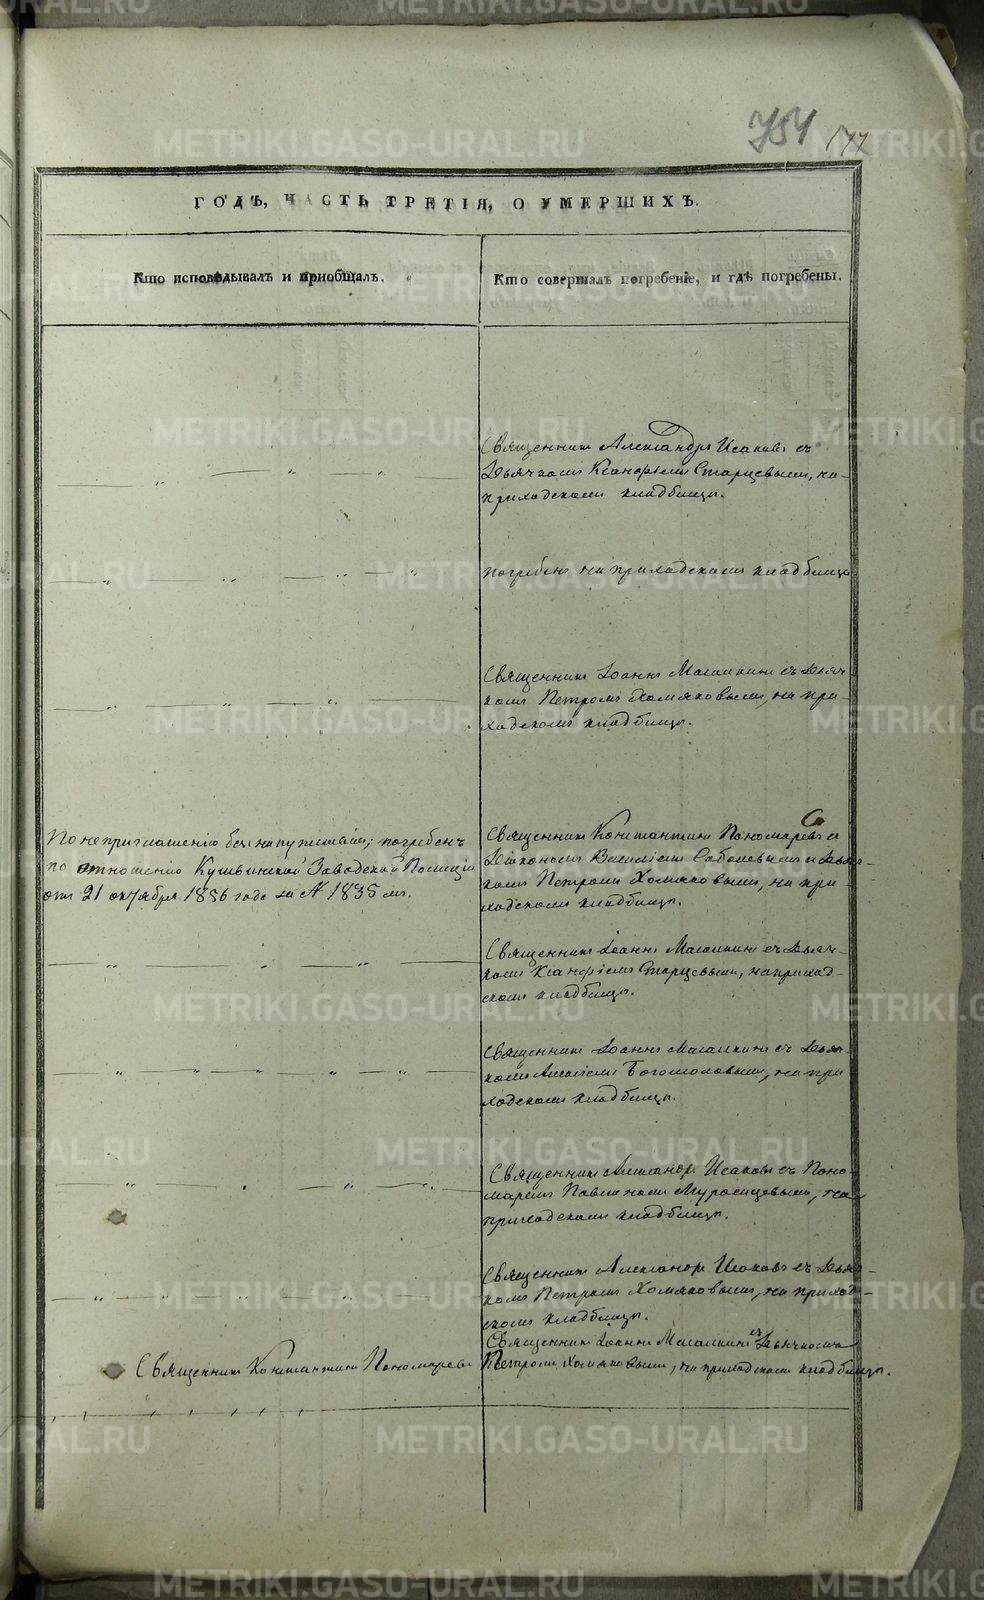 754 177
ГОДЪ, ЧАСТЬ ТРЕТІЯ, О УМЕРШИХЪ.
Кто исповѣдывалъ и пріобщалъ.
Кто совершалъ погребеніе, и гдѣ погребены.
Священникъ Александръ Исаковъ съ
Дьячкомъ Ксанфіемъ Старцевымъ, на
приходскомъ кладбищѣ.
Погребенъ на приходскомъ кладбищѣ
Священникъ Іоаннъ Масалкинъ съ Дьяч
комъ Петромъ Хомяковымъ, на при-
ходскомъ кладбищѣ.
По неприглашенію безъ напутствія; погребенъ
по отношенію Кушвинской Заводской Полиціи
отъ 21 октября 1856 года за № 1835 мъ.
Священникъ Константинъ Пономаревъ съ
Діакономъ Василіемъ Соболевымъ и Дьяч-
комъ Петромъ Хомяковымъ, на при-
ходскомъ кладбищѣ.
Священникъ Іоаннъ Масалкинъ съ Дьяч-
комъ Ксанфіемъ Старцевымъ, на приход-
скомъ кладбищѣ.
Священникъ Іоаннъ Масалкинъ съ Дьяч-
комъ Богословымъ, на при
ходскомъ кладбищѣ.
Священникъ Александръ Исаковъ съ Поно-
маремъ Павлиномъ на
приходскомъ кладбищѣ.
Священникъ Александръ Исаковъ съ Дьяч-
комъ Петромъ Хомяковымъ, на приход-
скомъ кладбищѣ.
Священникъ Константинъ Пономаревъ
Священникъ Іоаннъ Масалкинъ съ Дьячкомъ
Петромъ Хомяковымъ, на приходскомъ кладбищѣ.
METRIKI.GASO-URAL.RU